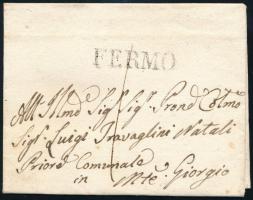 FERMO
All' Illmo Sig. Sig. Prond. Colmo
Sigr. Luigi Travaglini Natali
Priore Comunale
in Mte. Giorgio